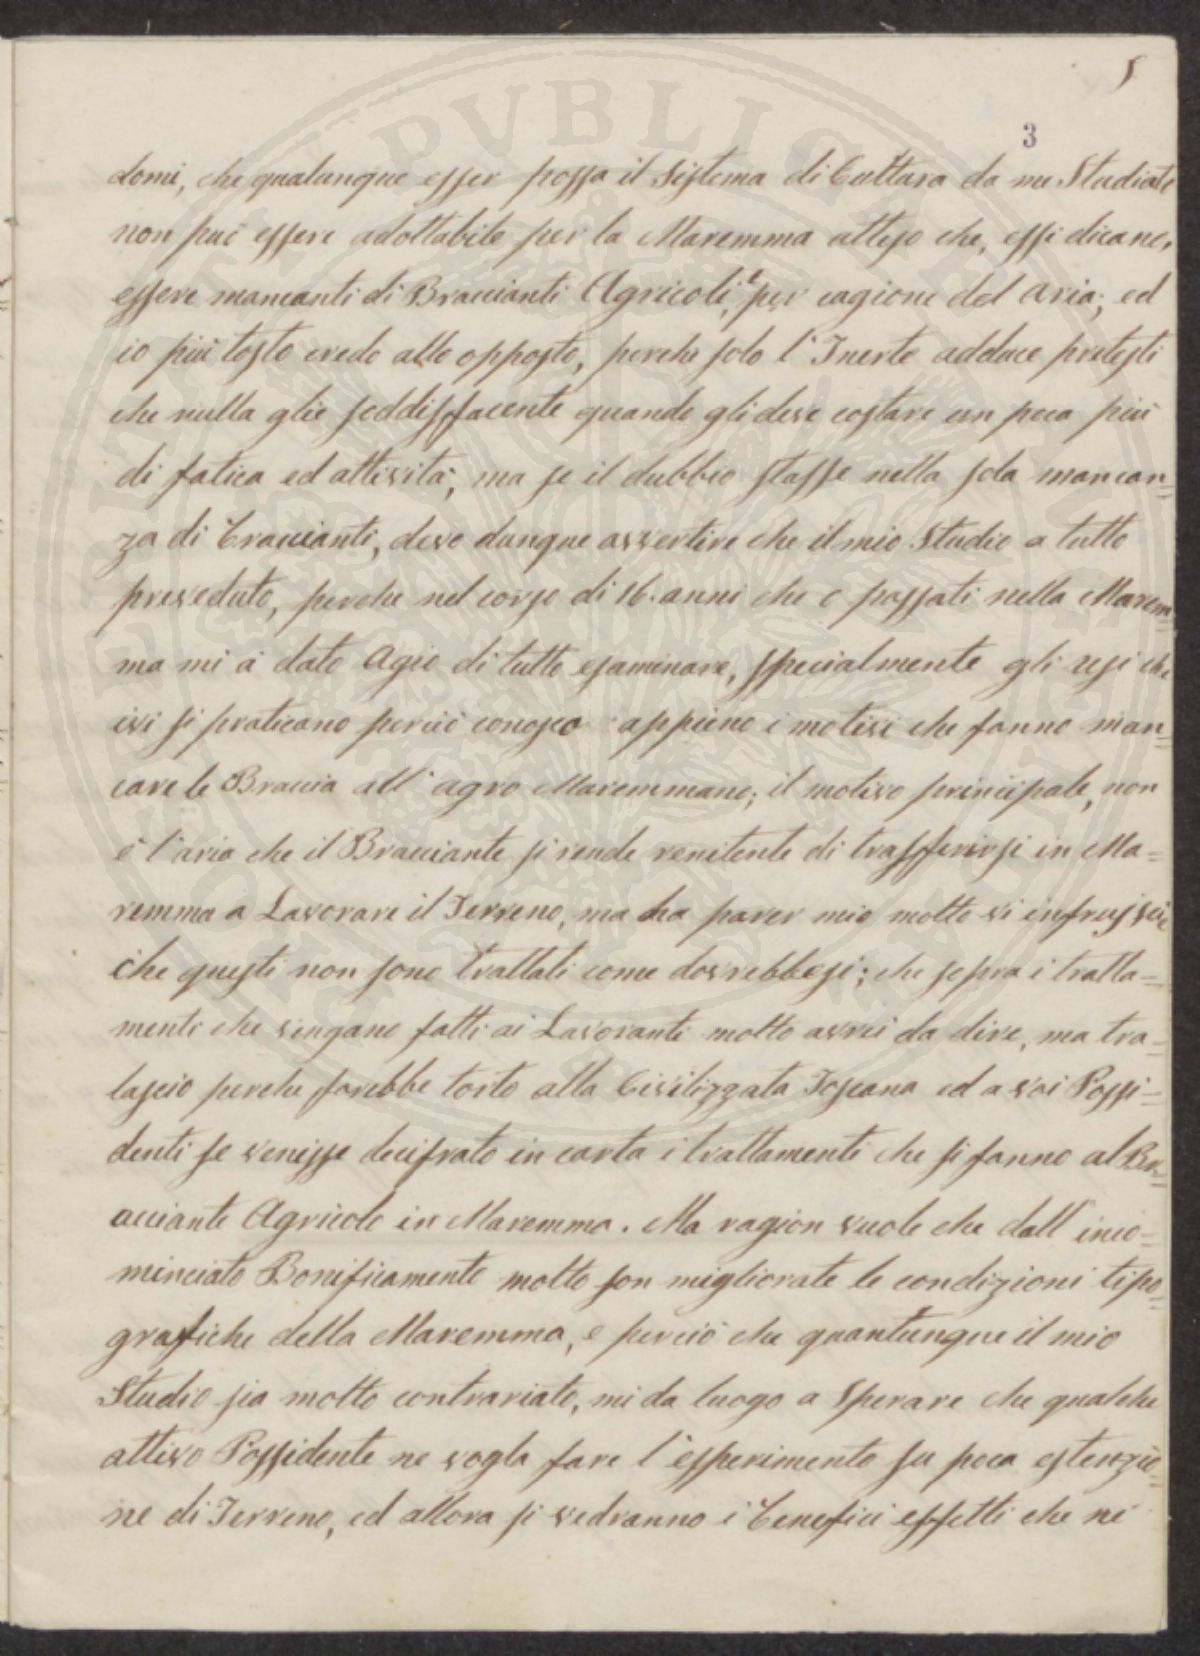 5
3
domi, che qualunque esser possa il sistema di Cultura da me Studiato
non può essere adottabile per la Maremma atteso che, essi dicano,
essere mancanti di Braccianti Agricoli, e per cagione del aria; ed
io più tosto credo allo opposto, perche solo l'Inerte adduce pretesti
che nulla glie soddisfacente quando gli deve costare un poca più
di fatica ed attività; ma se il dubbio stasse nella sola mancan=
za di Braccianti, devo dunque avvertire che il mio Studio a tutto
preveduto, perche nel corso di 16. anni che o passati nella Marem=
ma mi à dato Agio di tutto esaminare, specialmente gli usi che
ivi si praticano perciò conosco appieno i motivi che fanno man=
care le Braccia all'agro Maremmano; il motivo principale, non
è l'aria che il Bracciante si rende renitente di trasferirsi in Ma=
remma a Lavorare il Terreno, ma ha parer mio molto vi
che questi non sono trattati come dovrebbesi; che sopra i tratta=
menti che vengano fatti ai Lavoranti molto avrei da dire, ma tra=
lascio perche farebbe torto alla Civilizzata Toscana ed a voi Possi=
denti se venisse decifrato in carta i trattamenti che si fanno al Br=
acciante Agricolo in Maremma. Ma ragion vuole che dall'inco=
minciato Bonificamento molto son migliorate le condizioni tipo=
grafiche della Maremma, e perciò che quantunque il mio
Studio sia molto contrariato, mi da luogo a sperare che qualche
attivo Possidente ne vogla fare l'esperimento su poca estenzio=
ne di Terreno, ed allora si vedranno i Benefici effetti che ne